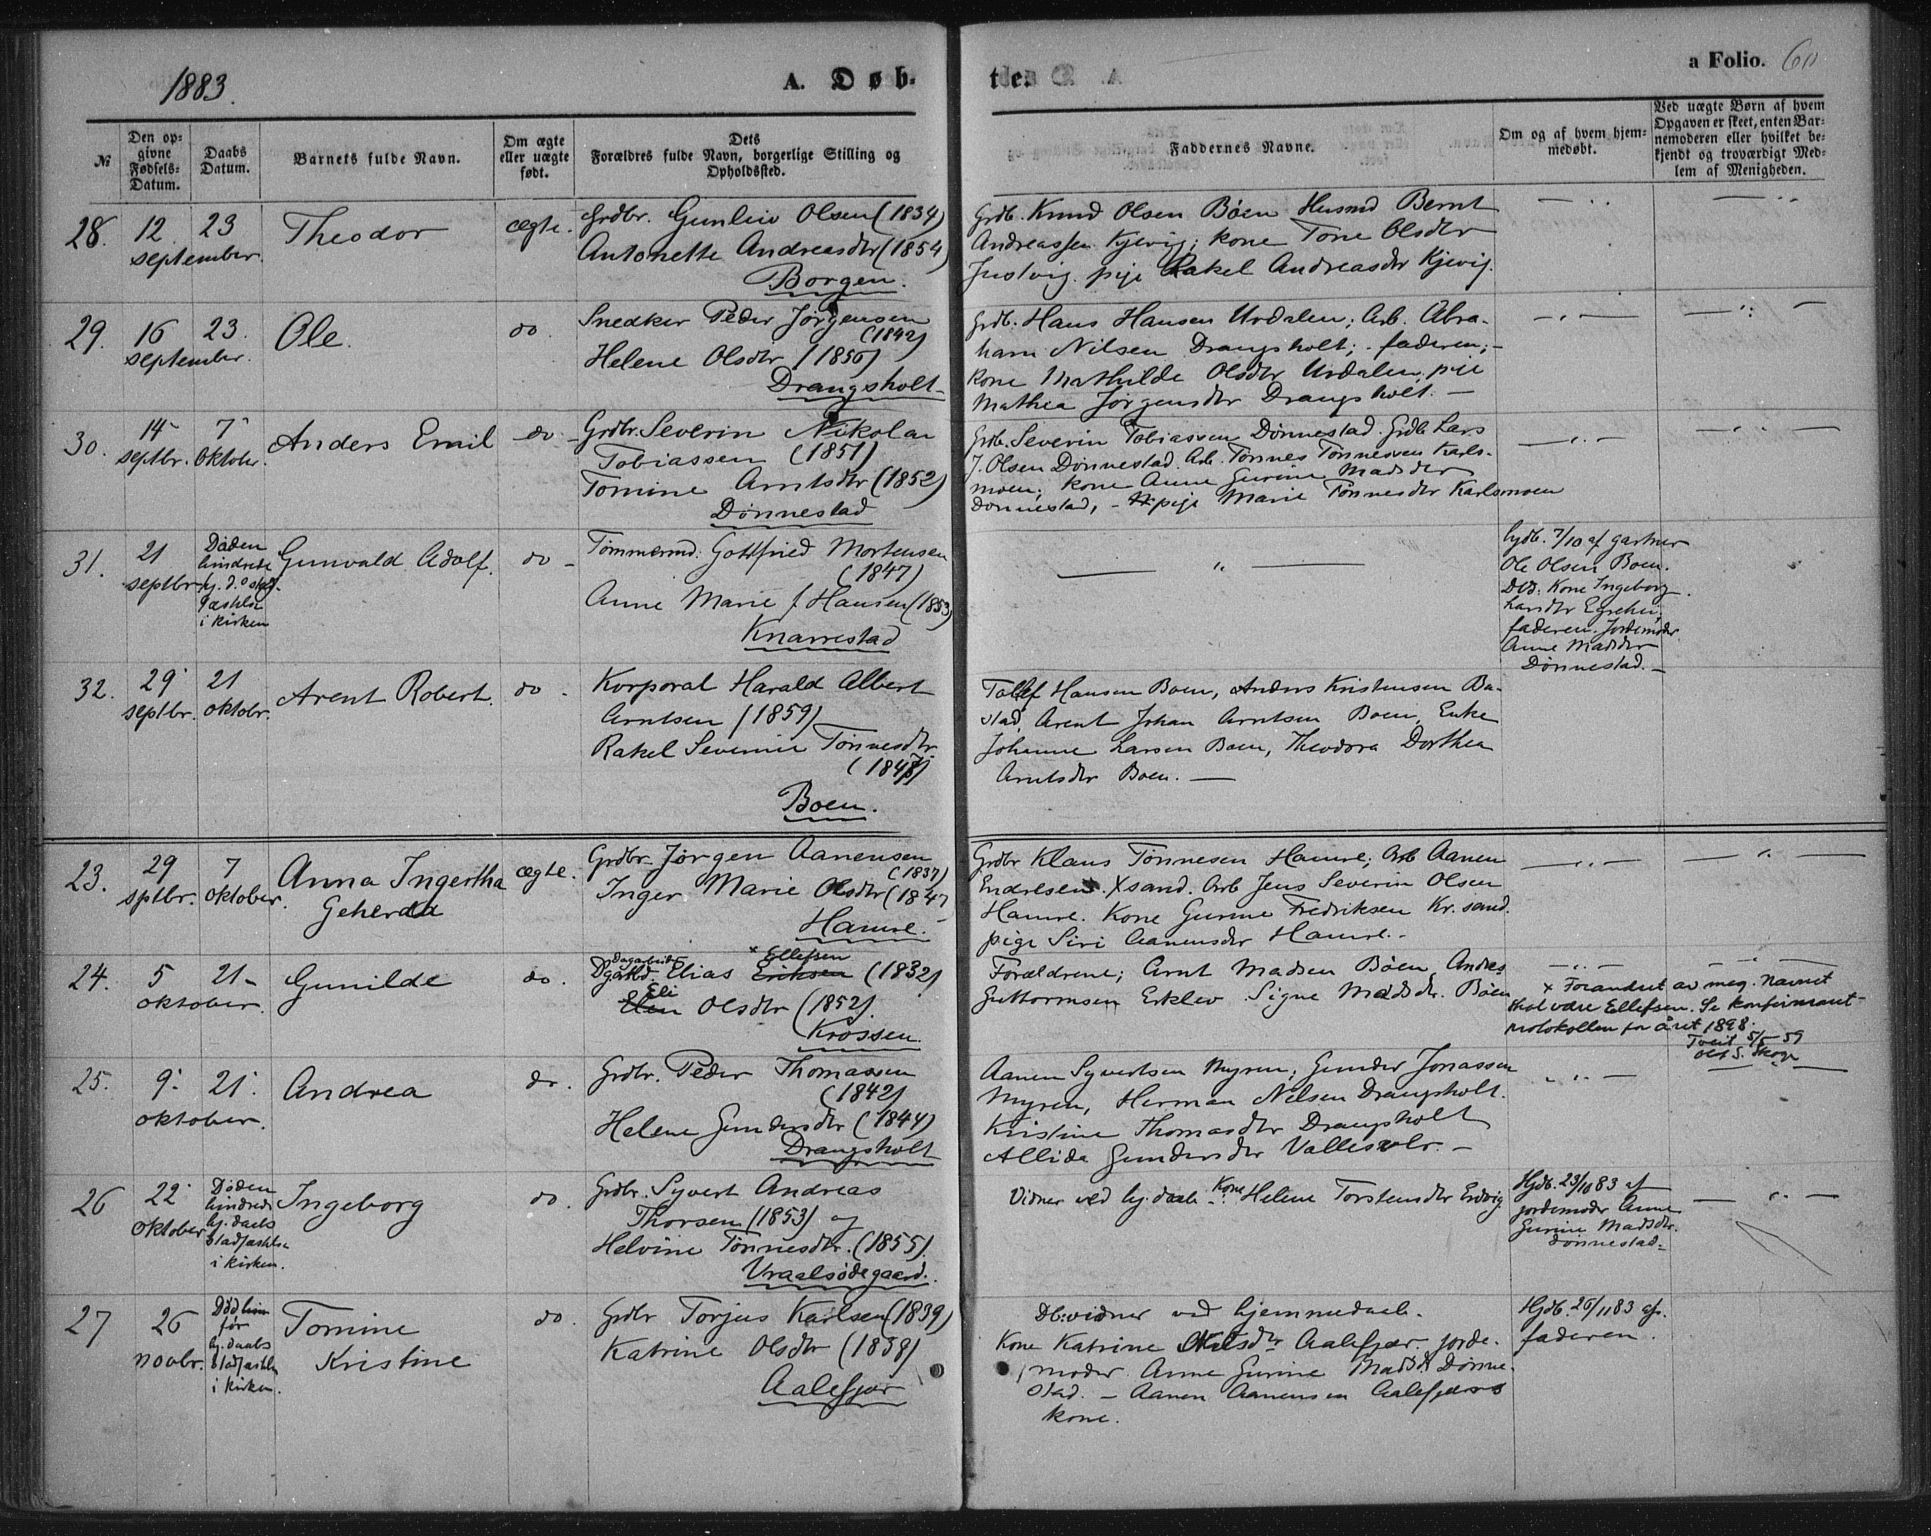 1883.
A. Døb-
te.
a Folio. 60
№
Den op-
givne
Fødsels-
Datum.
Daabs
Datum.
Barnets fulde Navn.
Om ægte
eller uægte
født.
Dets
Forældres fulde Navn, borgerlige Stilling og
Opholdssted.
Faddernes Navne.
Om og af hvem hjem-
medøbt.
Ved uægte Børn af hvem
Opgaven er skeet, enten Bar-
nemoderen eller hvilket be-
kjendt og troværdigt Med-
lem af Menigheden.
28. 12 23 Theodor ægte.
september.
Grdbr. Gunleiv Olsen (1834)
Antonette Andreasdtr (1854)
Borgen.
Grdb. Knud Olsen Bøen Husmd Bernt
Andreassen Kjevig; kone Tone Olsdtr
Justvig. pige Rakel Andreasdtr Kjevig.
29. 16 23. Ole. do.
september.
Snedker Peder Jørgensen
(1842)
Helene Olsdtr (1850)
Drangsholt
Grdb. Hans Hansen Urdalen; Arb. Abra-
ham Nilsen Drangsholt; faderen;
kone Mathilde Olsdtr Urdalen, pige
Mathea Jørgensdtr Drangsholt.
30. 14 7 Anders Emil do
septbr. Oktober.
Grdbr. Severin Nikolai
Tobiassen (1851)
Tomine Arntsdtr (1852)
Dønnestad
Grdb. Severin Tobiassen Dønnestad. Grdb Lars
J. Olsen Dønnestad. Arb. Tønnes Tønnessen Karls-
moen; kone Anne Gurine Madsdtr
Dønnestad, - pige Marie Tønnesdtr Karlsmoen
31. 21 Gunvald Adolf. do
septbr.
Døden
hindrede
hj. d.s
stadfæstelse
i kirken
Tømmermd. Gottfried Mortensen
(1847)
Anne Marie f. Hansen (1853)
Knarrestad
hjdb. 7/10 af gartner
Ole Olsen Boen.
Db: Kone Ingeborg
Larsdtr
faderen. Jordemoder
Anne Madsdtr
Dønnestad.
32. 29 21 Arent Robert. do
septbr. oktobr.
Korporal Harald Albert
Arntsen (1859)
Rakel Severine Tønnesdtr
Boen.
Tollef Hansen Boen, Anders Kristensen Ba-
stad, Arent Johan Arntsen Boen, Enke
Johanne Larsen Boen, Theodora Dorthea
Arntsdtr Boen.
23. 29 7 Anna Ingertha ægte.
sptbr. oktober. Geherda
Grdbr. Jørgen Aanensen
(1837)
Inger Marie Olsdtr (1847
Hamre.
Grdbr Klaus Tønnesen Hamre; Arb Aanen
Endresen Xsand. Arb Jens Severin Olsen
Hamre. Kone Gurine Fredriksen Kr.sand.
pige Siri Aanensdtr Hamre.
24. 5 21 Gunilde do.
oktober.
Dagarbeider x Ellefsen
Elias Eriksen (1832)
Eli
Elen Olsdtr (1852).
Krossen.
Forældrene; Arnt Madsen Bøen, Andres
Guttormsen Erklev Signe Madsdtr. Bøen
x Forandret av meg. Navnet
skal være Ellefsen. Se konfirmant-
protokollen for året 1898.
Tveit 5/5 59
Olaf S. Skoge
25. 9 21. Andrea do.
oktober.
Grdbr. Peder Thomassen
(1842)
Helene Gundersdtr (1844)
Drangsholt
Aanen Syvertsen Myren; Gunder Jonassen
Myren, Herman Nilsen Drangsholt.
Kristine Thomasdtr Drangsholt
Allida Gundersdtr
26 22 Ingeborg do.
oktober
Døden
hindrede
hj. daabs
stadfæstelse
i kirken.
Grdbr. Syvert Andreas
Thorsen (1853) og
Helvine Tønnesdtr. (1855).
Vraalsødegaard.
Vidner ved hj.daab - Kone Helene Torstensdtr
Hjdb. 23/10 83 af
jordemoder Anne
Gurine Madsdtr.
Dønnestad.
27 26 Tomine do.
novbr. Kristine
før
hj. daabs
stadfæstelse
i kirken.
Grdbr Torjus Karlsen (1839)
Katrine Olsdtr (1838)
Aalefjær
Db:vidner ved hjemmedaab.
Kone Katrine Aalefjær. jorde-
moder Anne Gurine Madsdtr Dønne-
stad. - Aanen Aanensen Aalefjærs
kone.
Hjdb. 26/11 83 af
faderen.